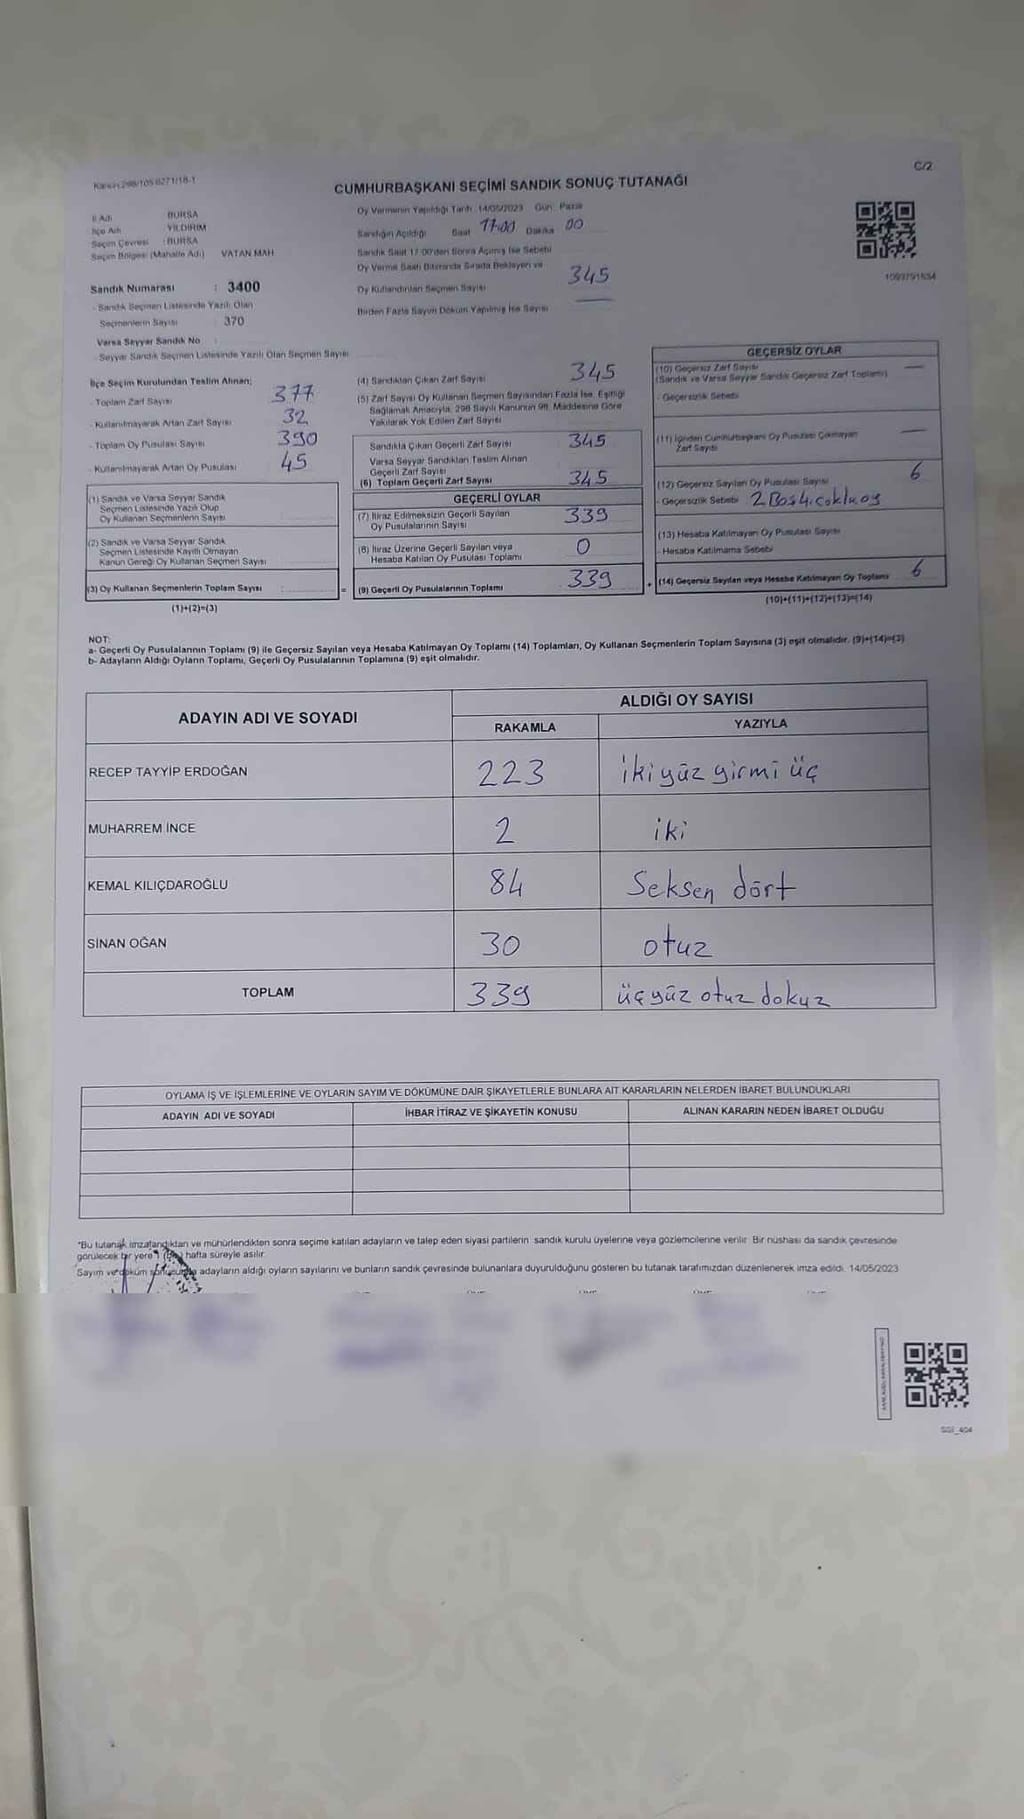 Kanun:298/105 6271/18-1
C/2
CUMHURBAŞKANI SEÇİMİ SANDIK SONUÇ TUTANAĞI
İl Adı BURSA
İlçe Adı YILDIRIM
Seçim Çevresi : BURSA
Seçim Bölgesi (Mahalle Adı) VATAN MAH
Sandık Numarası : 3400
- Sandık Seçmen Listesinde Yazılı Olan
Seçmenlerin Sayısı : 370
Varsa Seyyar Sandık No
- Seyyar Sandık Seçmen Listesinde Yazılı Olan Seçmen Sayısı
Oy Vermenin Yapıldığı Tarih :14/05/2023 Gün: Pazar
Sandığın Açıldığı Saat 17:00 Dakika 00
Sandık Saat 17:00'den Sonra Açılmış İse Sebebi
Oy Verme Saati Bitiminde Sırada Bekleyen ve
Oy Kullandırılan Seçmen Sayısı 345
Birden Fazla Sayım Döküm Yapılmış İse Sayısı
1093791634
İlçe Seçim Kurulundan Teslim Alınan;
- Toplam Zarf Sayısı 377
- Kullanılmayarak Artan Zarf Sayısı 32
- Toplam Oy Pusulası Sayısı 390
- Kullanılmayarak Artan Oy Pusulası 45
(1) Sandık ve Varsa Seyyar Sandık
Seçmen Listesinde Yazılı Olup
Oy Kullanan Seçmenlerin Sayısı
(2) Sandık ve Varsa Seyyar Sandık
Seçmen Listesinde Kayıtlı Olmayan
Kanun Gereği Oy Kullanan Seçmen Sayısı
(3) Oy Kullanan Seçmenlerin Toplam Sayısı : =
(1)+(2)=(3)
(4) Sandıktan Çıkan Zarf Sayısı 345
(5) Zarf Sayısı Oy Kullanan Seçmen Sayısından Fazla İse, Eşitliği
Sağlamak Amacıyla, 298 Sayılı Kanunun 98. Maddesine Göre
Yakılarak Yok Edilen Zarf Sayısı
Sandıkta Çıkan Geçerli Zarf Sayısı 345
Varsa Seyyar Sandıktan Teslim Alınan
Geçerli Zarf Sayısı
(6) Toplam Geçerli Zarf Sayısı 345
GEÇERLİ OYLAR
(7) İtiraz Edilmeksizin Geçerli Sayılan
Oy Pusulalarının Sayısı 339
(8) İtiraz Üzerine Geçerli Sayılan veya
Hesaba Katılan Oy Pusulası Toplamı 0
(9) Geçerli Oy Pusulalarının Toplamı 339 +
GEÇERSİZ OYLAR
(10) Geçersiz Zarf Sayısı
(Sandık ve Varsa Seyyar Sandık Geçersiz Zarf Toplamı)
- Geçersizlik Sebebi
(11) İçinden Cumhurbaşkanı Oy Pusulası Çıkmayan
Zarf Sayısı
(12) Geçersiz Sayılan Oy Pusulası Sayısı 6
- Geçersizlik Sebebi 2 Boş 4. çoklu oy
(13) Hesaba Katılmayan Oy Pusulası Sayısı
- Hesaba Katılmama Sebebi
(14) Geçersiz Sayılan veya Hesaba Katılmayan Oy Toplamı 6
(10)+(11)+(12)+(13)=(14)
NOT:
a- Geçerli Oy Pusulalarının Toplamı (9) ile Geçersiz Sayılan veya Hesaba Katılmayan Oy Toplamı (14) Toplamları, Oy Kullanan Seçmenlerin Toplam Sayısına (3) eşit olmalıdır. (9)+(14)=(3)
b- Adayların Aldığı Oyların Toplamı, Geçerli Oy Pusulalarının Toplamına (9) eşit olmalıdır.
ADAYIN ADI VE SOYADI
ALDIĞI OY SAYISI
RAKAMLA YAZIYLA
RECEP TAYYİP ERDOĞAN 223 ikiyüz girmi üç
MUHARREM İNCE 2 iki
KEMAL KILIÇDAROĞLU 84 Seksen dört
SİNAN OĞAN 30 otuz
TOPLAM 339 üçyüz otuz dokuz
OYLAMA İŞ VE İŞLEMLERİNE VE OYLARIN SAYIM VE DÖKÜMÜNE DAİR ŞİKAYETLERLE BUNLARA AİT KARARLARIN NELERDEN İBARET BULUNDUKLARI
ADAYIN ADI VE SOYADI İHBAR İTİRAZ VE ŞİKAYETİN KONUSU ALINAN KARARIN NEDEN İBARET OLDUĞU
*Bu tutanak imzalandıktan ve mühürlendikten sonra seçime katılan adayların ve talep eden siyasi partilerin sandık kurulu üyelerine veya gözlemcilerine verilir. Bir nüshası da sandık çevresinde
görülecek bir yere 1 (Bir) hafta süreyle asılır.
Sayım ve döküm sonucunda adayların aldığı oyların sayılarını ve bunların sandık çevresinde bulunanlara duyurulduğunu gösteren bu tutanak tarafımızdan düzenlenerek imza edildi. 14/05/2023